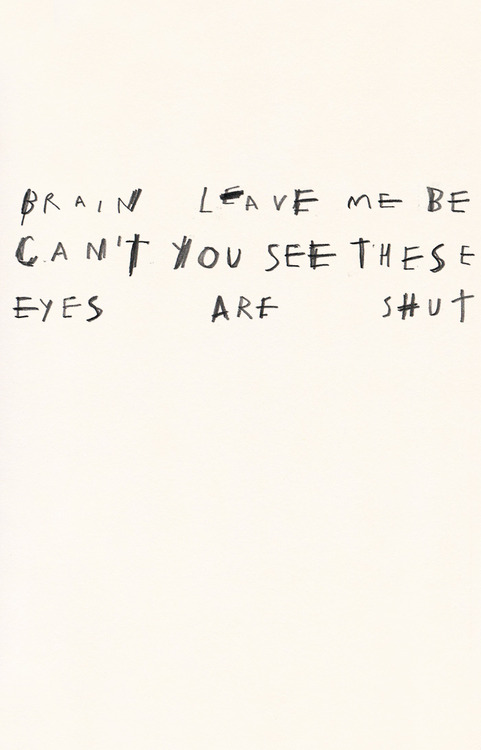 BRAIN LEAVE ME BE
CAN'T YOU SEE THESE
EYES ARE SHUT